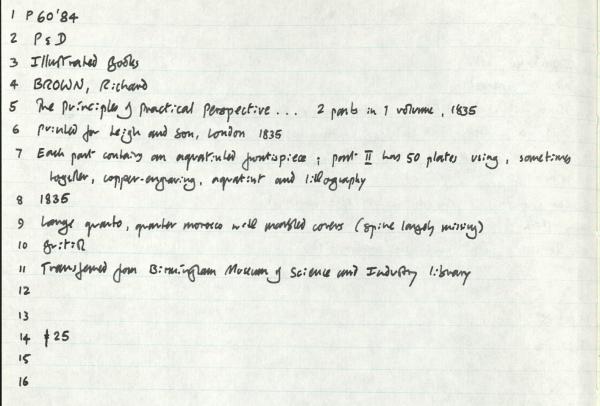 1 P 60'84
2 P & D
3 Illustrated Books
4 BROWN, Richard
5 The Principles of Practical Perspective ... 2 parts in 1 volume, 1835
6 Printed for Leigh and Son, London 1835
7 Each part contains an aquatinted frontispiece; part II has 50 plates using, sometimes
together, copper-engraving, aquatint and lithography
8 1835
9 Large quarto, quarter morocco with marbled covers (spine largely missing)
10 British
11 Transferred from Birmingham Museum of Science and Industry library
12
13
14 25
15
16